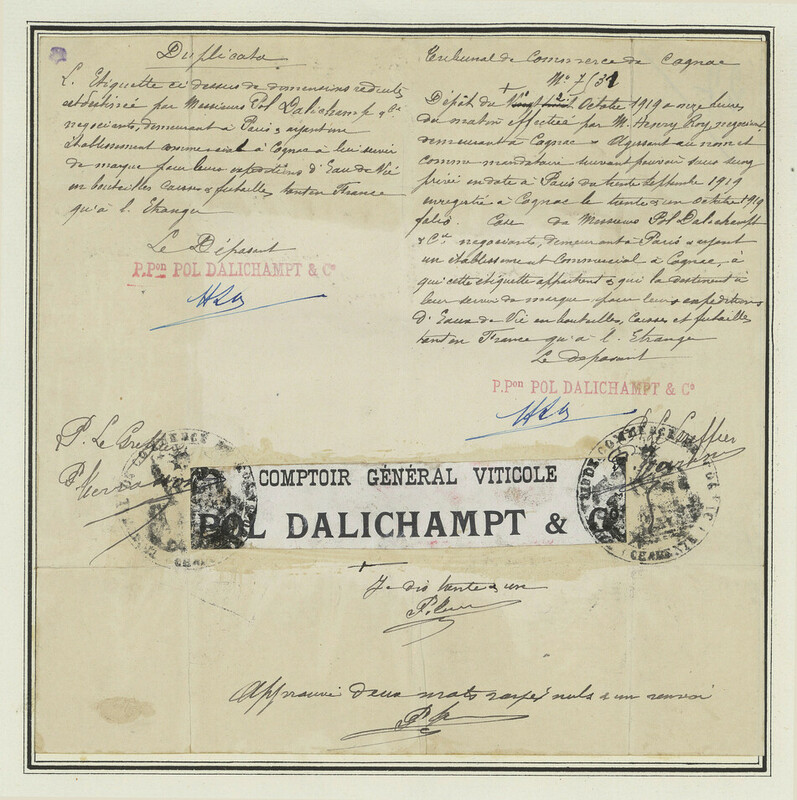 Duplicata
L'Etiquette ci dessus de dimensions réduites
est destinée par Messieurs Pol Dalichamp & Cie
négociants, demeurant à Paris & ayant un
établissement commercial à Cognac à leur servir
de marque pour leurs expéditions d'Eau de Vie
en bouteilles caisses & futailles, tant en France
qu'à l'Etranger
Le Déposant
P.Pon POL DALICHAMPT & Co
P. Le Greffier
Tribunal de Commerce de Cognac
No 7531
Dépôt du Octobre 1919 à onze heures
du matin effectué par M. Henry Roy, négociant
demeurant à Cognac & Agissant au nom et
comme mandataire suivant pouvoir sous seing
privé en date à Paris du trente Septembre 1919
enregistré à Cognac le trente & un octobre 1919
folio Case de Messieurs Pol Dalichampt
& Cie négociants, demeurant à Paris & ayant
un établissement Commercial à Cognac, à
qui cette étiquette appartient & qui la destinent à
leur servir de marque pour leurs expéditions
d'Eaux de Vie en bouteilles, Caisses et futailles
tant en France qu'à l'Etranger
Le déposant
P.Pon POL DALICHAMPT & Co
P. Le Greffier
COMPTOIR GÉNÉRAL VITICOLE
POL DALICHAMPT & Co
Je dis trente & un
Approuvé deux mots rayés nuls & un renvoi